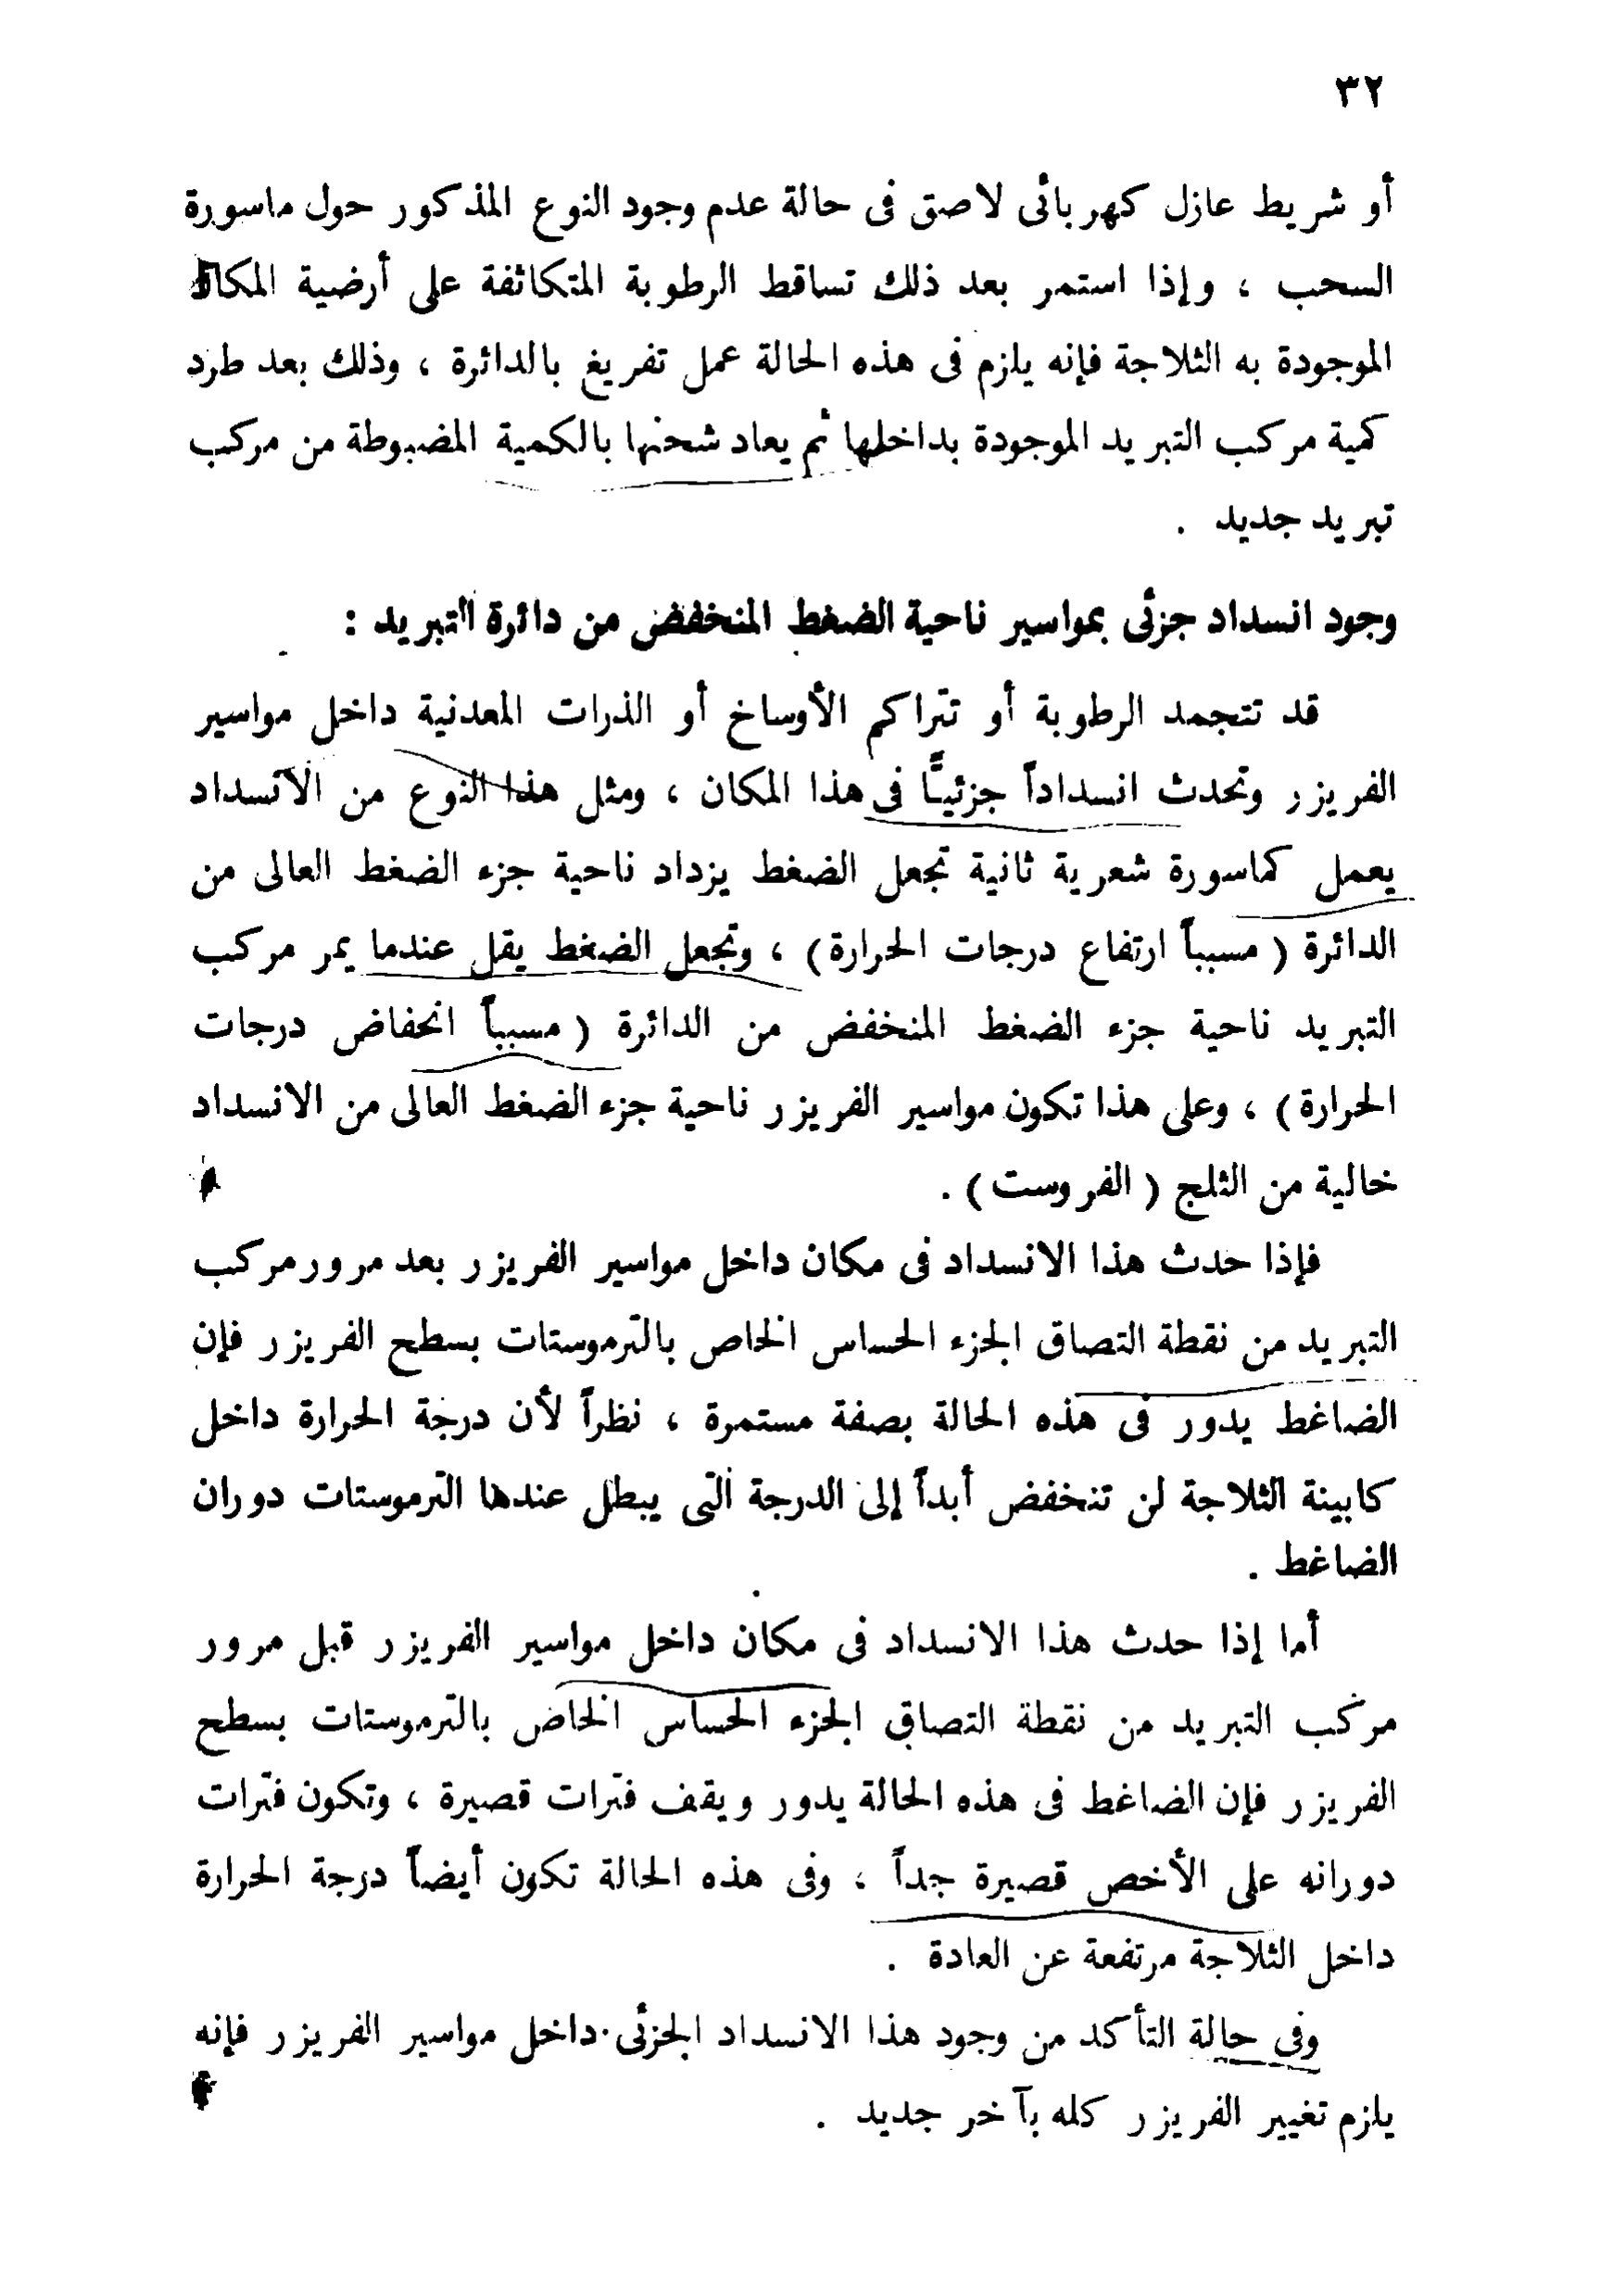 ٣٢
أو شريط عازل كهربائى لاصق فى حالة عدم وجود النوع المذكور حول ماسورة
السحب ، وإذا استمر بعد ذلك تساقط الرطوبة المتكاثفة على أرضية المكان
الموجودة به الثلاجة فإنه يلزم فى هذه الحالة عمل تفريغ بالدائرة ، وذلك بعد طرد
كمية مركب التبريد الموجودة بداخلها ثم يعاد شحنها بالكمية المضبوطة من مركب
تبريد جديد .
وجود انسداد جزئى بمواسير ناحية الضغط المنخفض من دائرة التبريد :
قد تتجمد الرطوبة أو تتراكم الأوساخ أو الذرات المعدنية داخل مواسير
الفريزر وتحدث انسداداً جزئيًّا فى هذا المكان ، ومثل هذا النوع من الانسداد
يعمل كماسورة شعرية ثانية تجعل الضغط يزداد ناحية جزء الضغط العالى من
الدائرة ( مسبباً ارتفاع درجات الحرارة ) ، وتجعل الضغط يقل عندما يمر مركب
التبريد ناحية جزء الضغط المنخفض من الدائرة ( مسبباً انخفاض درجات
الحرارة ) ، وعلى هذا تكون مواسير الفريزر ناحية جزء الضغط العالى من الانسداد
خالية من الثلج ( الفروست ) .
فإذا حدث هذا الانسداد فى مكان داخل مواسير الفريزر بعد مرور مركب
التبريد من نقطة التصاق الجزء الحساس الخاص بالترموستات بسطح الفريزر فإن
الضاغط يدور فى هذه الحالة بصفة مستمرة ، نظراً لأن درجة الحرارة داخل
كابينة الثلاجة لن تنخفض أبداً إلى الدرجة التى يبطل عندها الترموستات دوران
الضاغط .
أما إذا حدث هذا الانسداد فى مكان داخل مواسير الفريزر قبل مرور
مركب التبريد من نقطة التصاق الجزء الحساس الخاص بالترموستات بسطح
الفريزر فإن الضاغط فى هذه الحالة يدور ويقف فترات قصيرة ، وتكون فترات
دورانه على الأخص قصيرة جداً ، وفى هذه الحالة تكون أيضاً درجة الحرارة
داخل الثلاجة مرتفعة عن العادة .
وفى حالة التأكد من وجود هذا الانسداد الجزئى داخل مواسير الفريزر فإنه
يلزم تغيير الفريزر كله بآخر جديد .